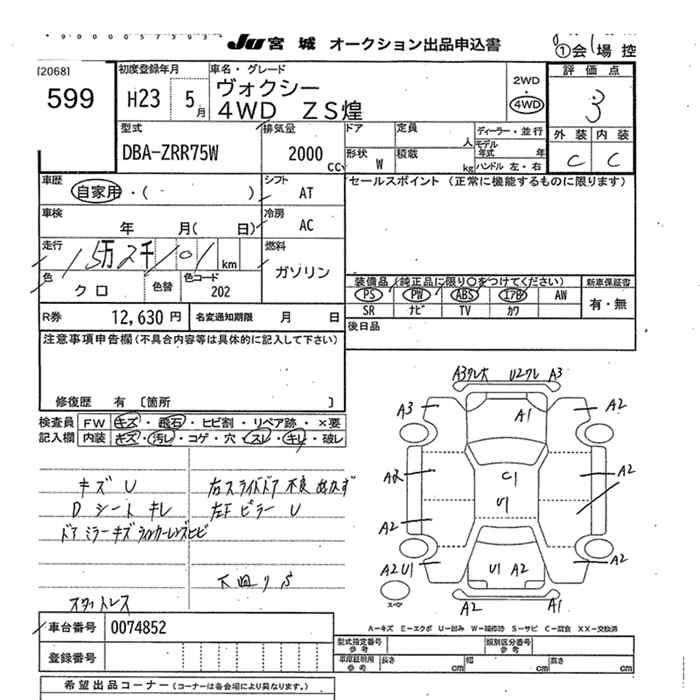 JU 宮城 オークション出品申込書
①会場控
[2068]
599
初度登録年月
H23 5月
車名・グレード
ヴォクシー
4WD ZS煌
2WD
・
4WD
評価点
3
外装 内装
C C
型式
DBA-ZRR75W
排気量
2000 CC
ドア
定員 人
ディーラー・並行
モデル年式 年
形状 W
積載 kg
ハンドル 左・右
車歴
自家用・( )
シフト
AT
セールスポイント (正常に機能するものに限ります)
車検
年 月( 日)
冷房
AC
走行
15万2千101 km
燃料
ガソリン
色
クロ
色替
色コード
202
装備品 (純正品に限り○をつけてください)
新車保証書
PS PW ABS エアB AW
SR ナビ TV カワ
有・無
R券 12,630 円
名変通知期限 月 日
後日品
注意事項申告欄(不具合内容等は具体的に記入して下さい)
修復歴 有 〔箇所 〕
検査員記入欄
FW キズ・飛石・ヒビ割・リペア跡・×要
内装 キズ・汚レ・コゲ・穴・スレ・キレ・破レ
キズ U
D シート キレ
ドア ミラーキズ ウィンカーレンズヒビ
右スライドドア 不良
左F ピラー U
下回リ S
スタットレス
A3 U2 A3
A3 A1 A2
A2 C1 A2
U1
A2
A2U1 U1 A2 A2
A2 A1
スペア
A=キズ E=エクボ U=凹み W=補修跡 S=サビ C=腐食 XX=交換済
車台番号 0074852
登録番号
型式指定番号 参考
類別区分番号 参考
車庫証明用 参考 長さ cm 幅 cm 高さ cm
希望出品コーナー (コーナーは各会場により異なります。)